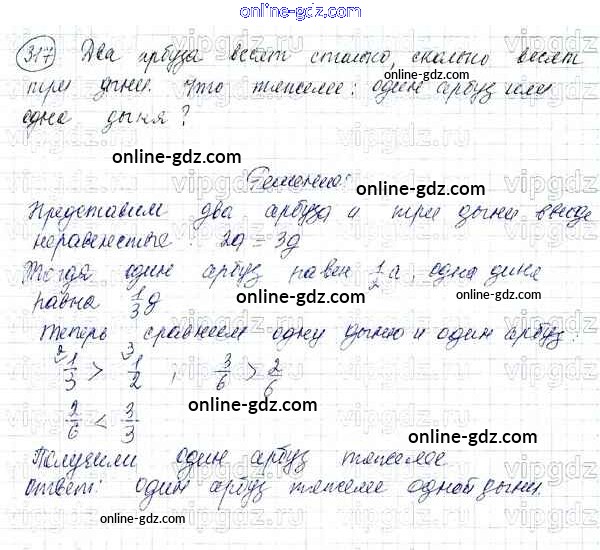 online-gdz.com
317 Два арбуза весят столько, сколько весят
online-gdz.com
три дыни. Что тяжелее: один арбуз или
одна дыня?
online-gdz.com
Решение:
online-gdz.com
Представим два арбуза и три дыни ввиде
неравенства: 2а = 3д
online-gdz.com
Тогда один арбуз равен 1/2 а, одна дыня
равна 1/3 д
online-gdz.com
Теперь сравнием одну дыню и один арбуз:
2 1/3 > 3 1/2 ; 3/6 > 2/6
online-gdz.com
2/6 < 3/3
online-gdz.com
Получили один арбуз тяжелее
Ответ: один арбуз тяжелее одной дыни.
online-gdz.com
online-gdz.com